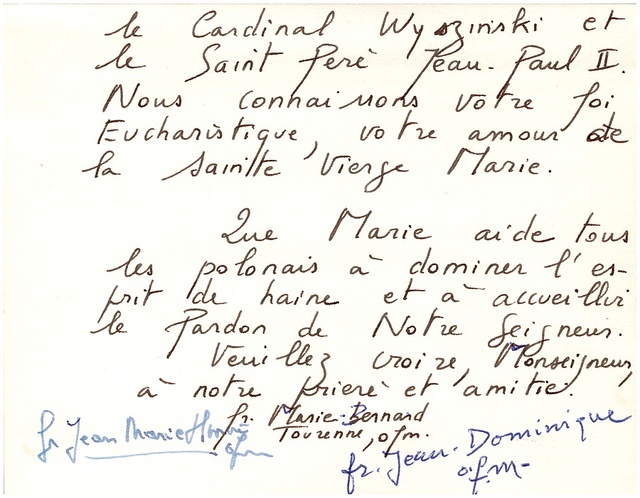 le Cardinal Wyszinski et
le Saint Père Jean-Paul II.
Nous connaissons votre foi
Eucharistique, votre amour de
la sainte Vierge Marie.
Que Marie aide tous
les polonais à dominer l'es-
prit de haine et à accueillir
le Pardon de Notre Seigneur.
Veuillez croire, Monseigneur,
à notre prière et amitié.
fr. Marie-Bernard
Tourenne, ofm.
fr Jean Marie
ofm
fr. Jean-Dominique
o.f.m-